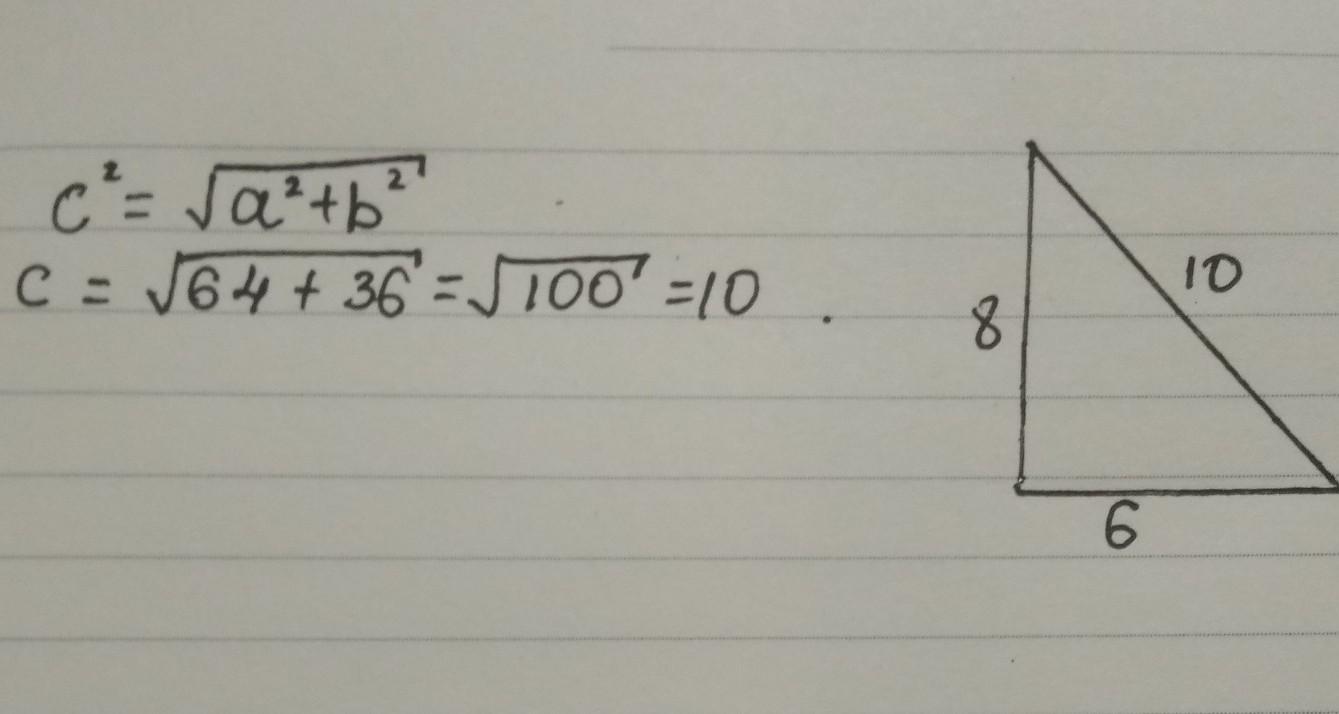 c² = √a²+b²
c = √64 + 36 = √100 = 10 .
10
8
6